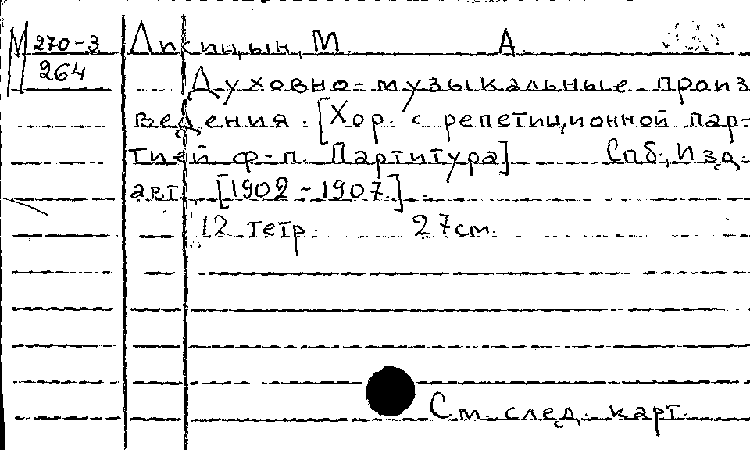 М 270-3 Лисицын, М. А.
264
Духовно-музыкальные произ
ведения. [Хор. с репетиционной пар-
тией ф-п. Партитура] Спб., Изд.
авт. [1902-1907.]
12 тетр. 27см.
См. след. карт.